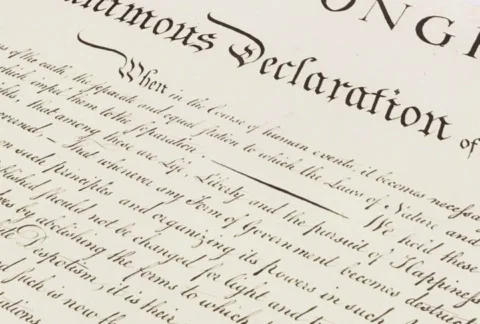 ONG
nimous Declaration of
When in the Course of human events, it becomes necessa
of the earth, the separate and equal station to which the Laws of Nature and
which impel them to the separation. We hold these
ghts, that among these are Life, Liberty and the pursuit of Happiness
overned, — That whenever any Form of Government becomes destruct
on such principles and organizing its powers in such
ablished should not be changed for light and
ves by abolishing the forms to which
Despotism, it is their
d such is now th
ations